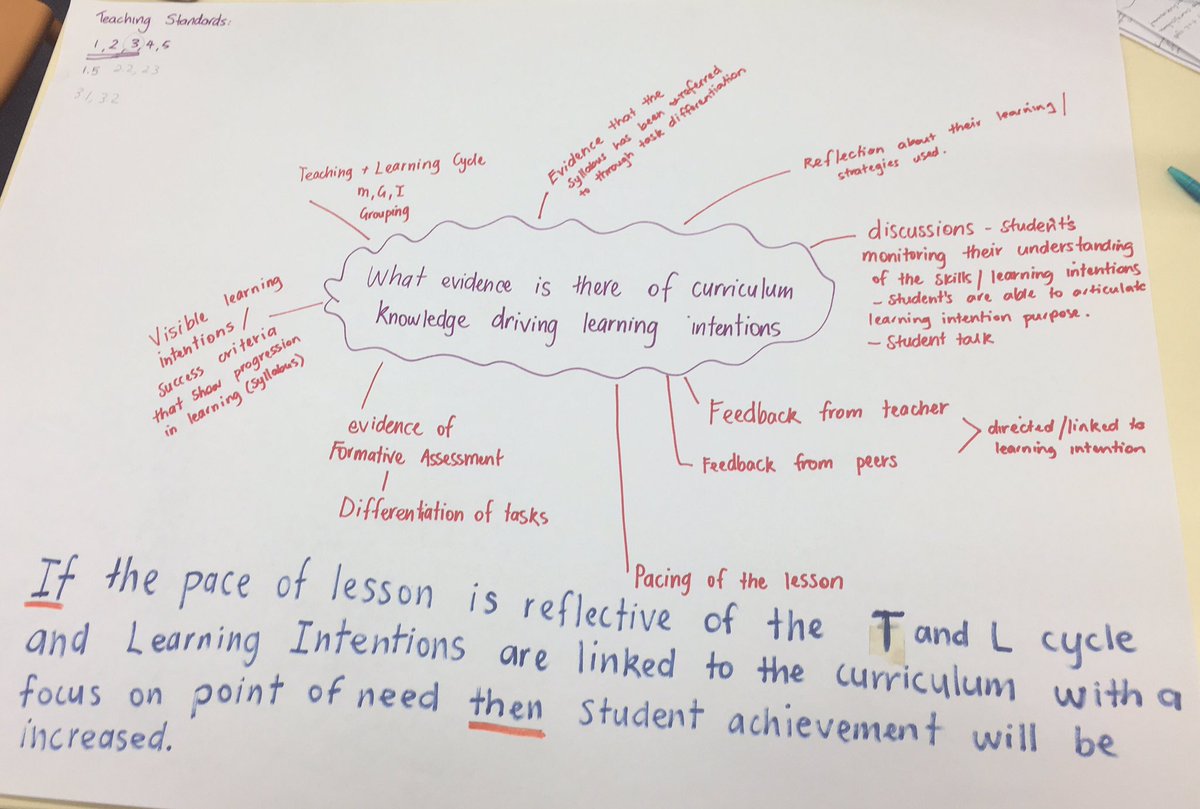 Teaching Standards:
1, 2, 3, 4, 5
1.5 2.2, 2.3
3.1, 3.2
Teaching + Learning Cycle
M, G, I
Grouping
Evidence that the
syllabus has been referred
to through task differentiation
Reflection about their learning/
strategies used.
discussions - Student's
monitoring their understanding
of the skills/ learning intentions
- Student's are able to articulate
learning intention purpose.
- Student talk
What evidence is there of curriculum
Knowledge driving learning intentions
Visible learning
intentions /
Success criteria
that show progression
in learning (syllabus)
evidence of
Formative Assessment
Differentiation of tasks
Feedback from teacher
Feedback from peers
directed/linked to
learning intention
Pacing of the lesson
If the pace of lesson is reflective of the T and L cycle
and Learning Intentions are linked to the curriculum with a
focus on point of need then Student achievement will be
increased.